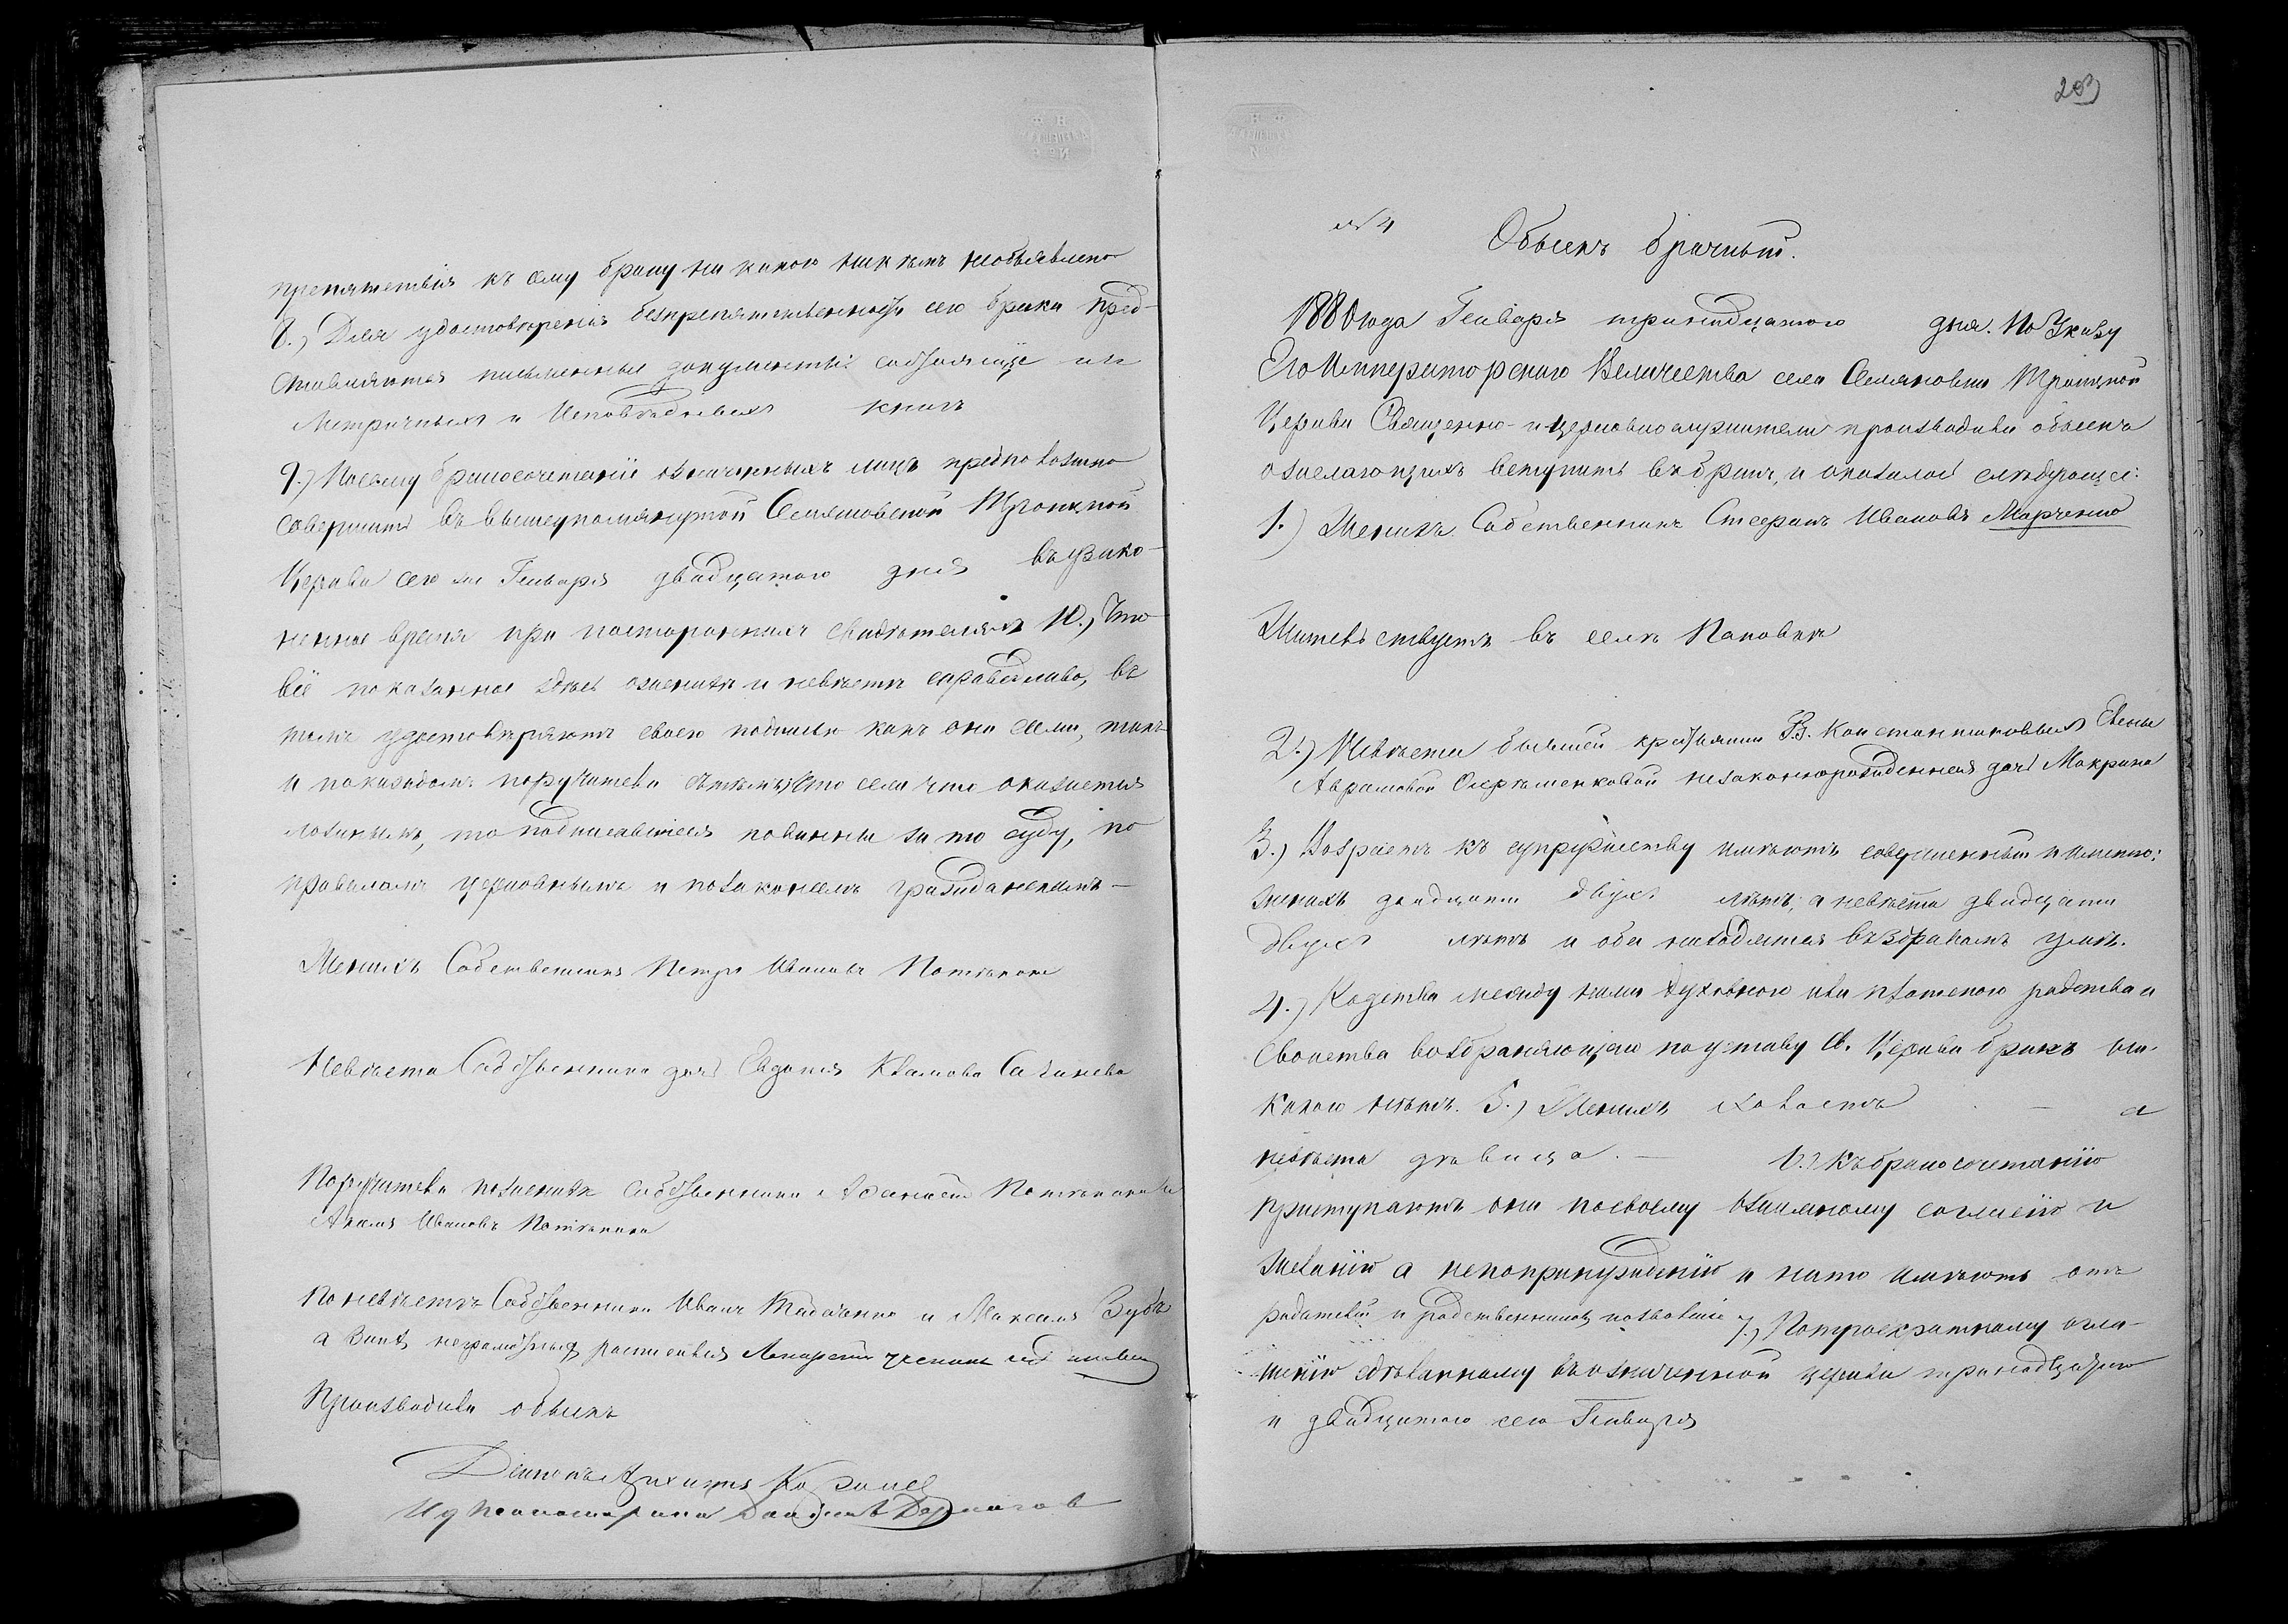 препятствія къ сему браку ни какого никемъ необъявлено
8.) Для удостовѣренія безпрепятственности сего брака пред-
ставляются письменные документы:
Метричныхъ и Исповѣдныхъ книгъ
9.) Посему бракосочетаніе означенныхъ лицъ предположено
совершить въ вышеупомянутой Семяновской Троицкой
Церкви сего Генваря двадцатого дня въ узако-
ненное время при постороннихъ свидѣтеляхъ 10.) Что
всё показанное здѣсь о женихѣ и невѣстѣ справедливо, въ
томъ удостовѣряютъ своею подписью какъ они сами, такъ
и по каждомъ поручители съ тѣмъ что если что окажется
ложнымъ, то подписавшіеся повинны за то суду, по
правиламъ церковнымъ и по законамъ гражданскимъ —
Женихъ Собственникъ Петръ Ивановъ
Невѣста Собственника дочь Евдокія
Поручители по женихѣ собственники
Ивановъ
По невѣстѣ Собственники Иванъ и Максимъ Зубъ
а за нихъ неграмотныхъ росписался
Производили обыскъ
203
№ 4 Обыскъ брачный.
1880 года Генваря тринадцатого дня. По Указу
Его Императорскаго Величества села Семяновки Троицкой
Церкви Священно- и церковнослужители производили обыскъ
о желающихъ вступить въ бракъ, и оказалось слѣдующее:
1.) Женихъ Собственникъ Стефанъ Ивановъ Марченко
Жительствуетъ въ селѣ Поповкѣ
2.) Невѣста бывшей крестьянки Г.г. Константиновыхъ Елены
Аврамовой незаконнорожденная дочь Макрина
3.) Возрастъ къ супружеству имѣютъ совершенный и именно:
женихъ двадцати двухъ лѣтъ, а невѣста двадцати
двухъ лѣтъ и оба находятся въ здравомъ умѣ.
4.) Родства между ними духовного или плотскаго родства и
свойства возбраняющаго по уставу Св. Церкви бракъ ни-
какого нѣтъ. 5.) Женихъ холостъ — а
невѣста дѣвица. — 6.) Къ бракосочетанію
приступаютъ они по своему взаимному согласію и
желанію а не по принужденію и на то имѣютъ отъ
родителей и родственниковъ позволеніе 7.) По троекратному огла-
шенію сдѣланному въ означенной церкви тринадцатого
и двадцатого сего Генваря